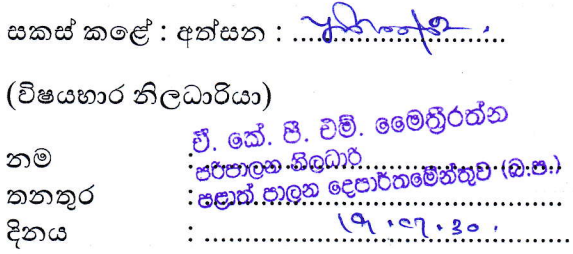 සකස් කළේ : අත්සන : ....................................
(විෂයභාර නිලධාරියා)
ඒ. කේ. පී. එම්. මෛත්‍රීරත්න
නම : පරිපාලන නිලධාරි
තනතුර : පළාත් පාලන දෙපාර්තමේන්තුව (බ.ප.)
දිනය : 19.07.30.